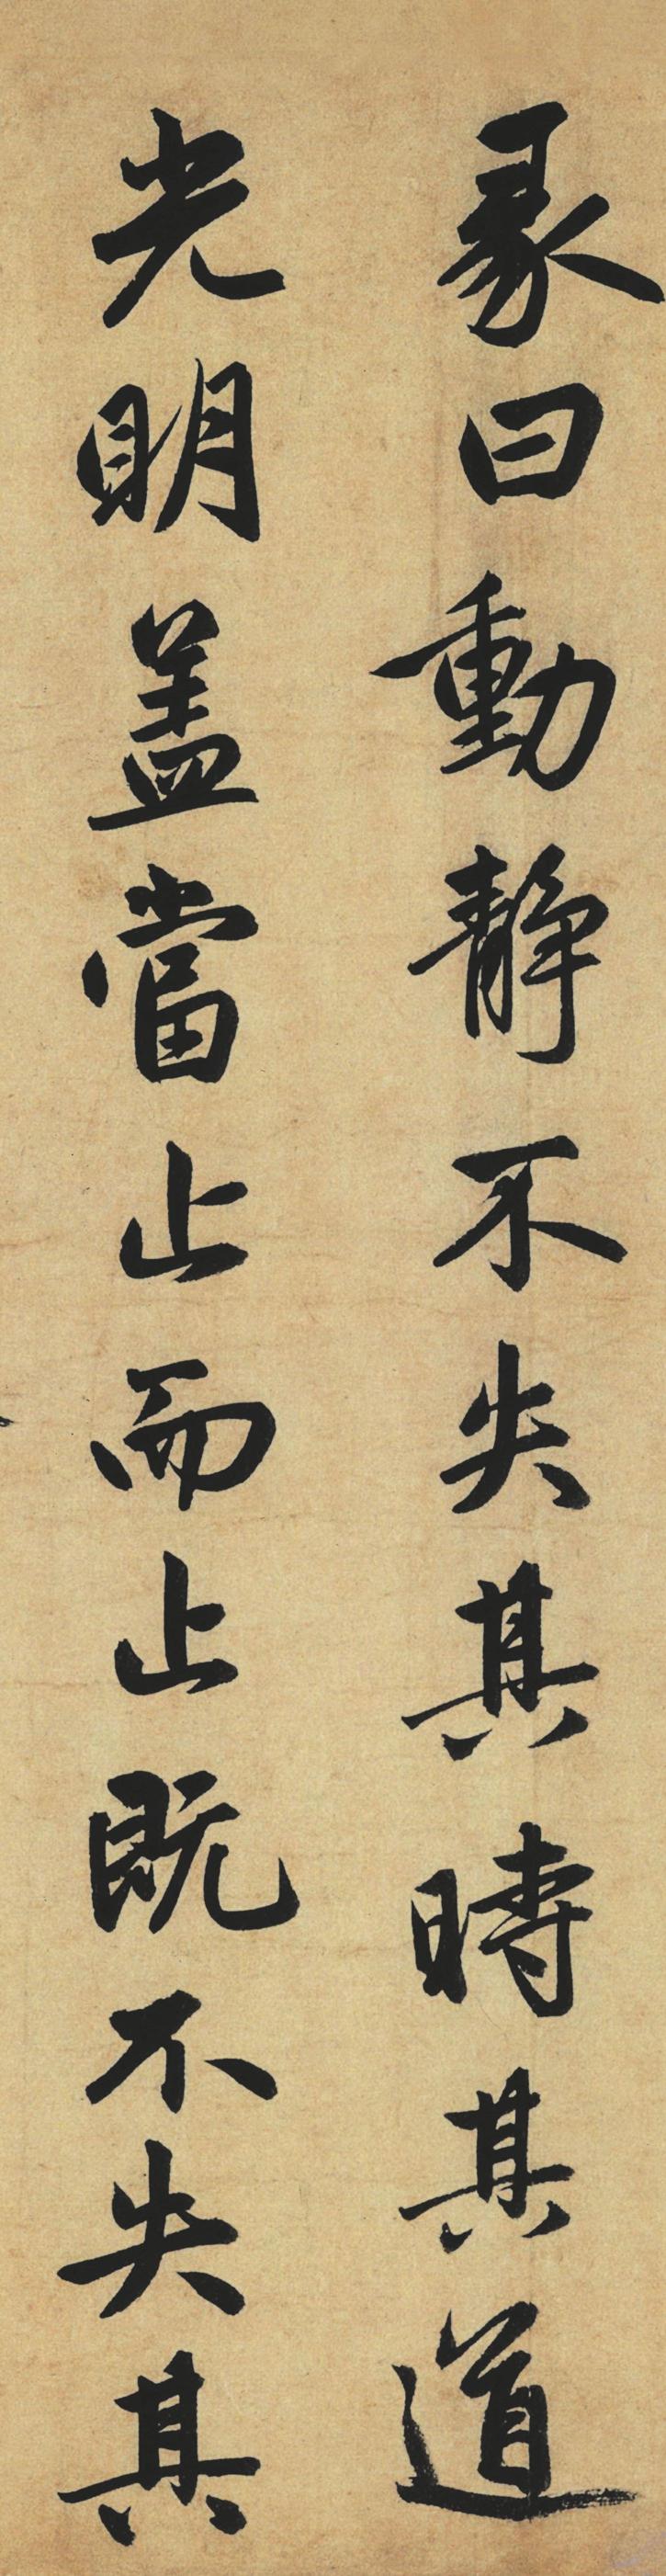 彖曰動静不失其時其道
光明盖當止而止既不失其